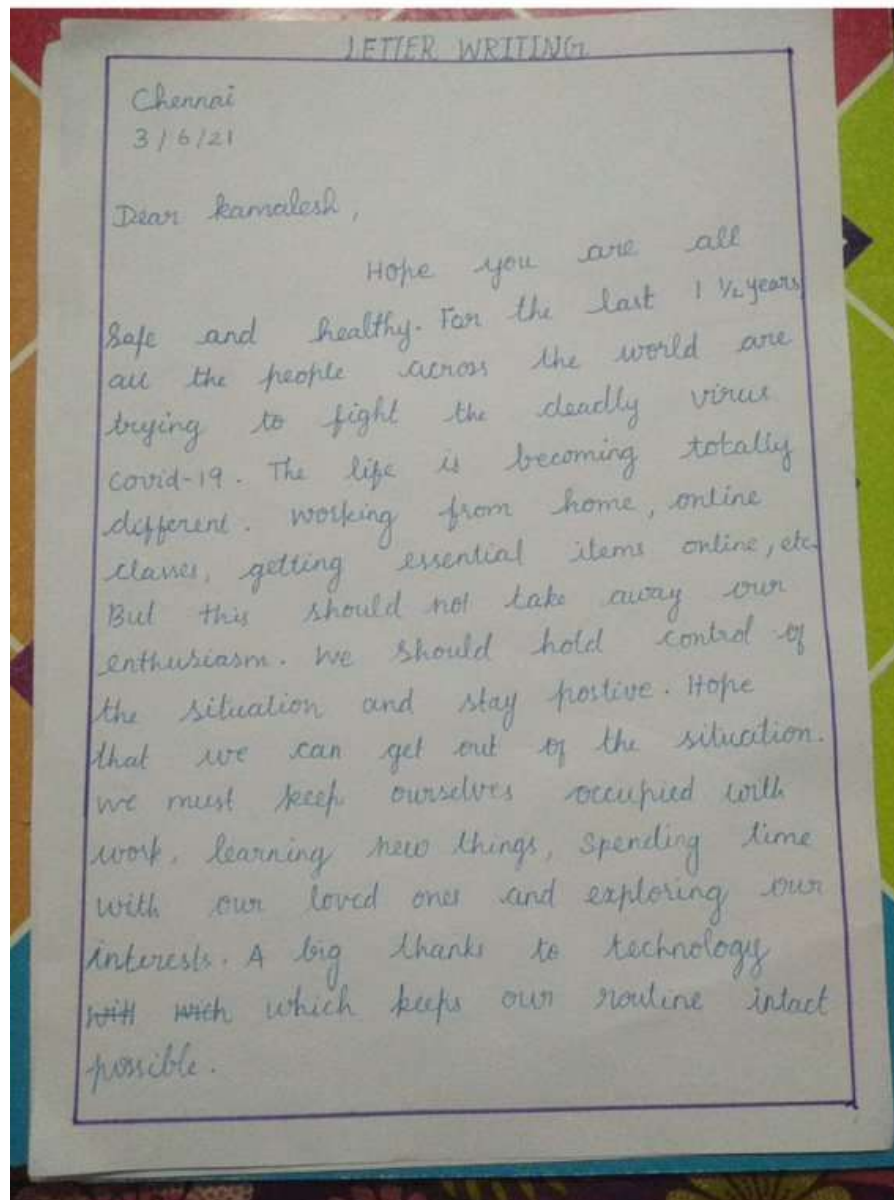 LETTER WRITING
Chennai
3/6/21
Dear kamalesh,
Hope you are all
safe and healthy. For the last 1 ½ years
all the people across the world are
trying to fight the deadly virus
covid-19. The life is becoming totally
different. Working from home, online
classes, getting essential items online, etc.
But this should not take away our
enthusiasm. We should hold control of
the situation and stay postive. Hope
that we can get out of the situation.
we must keep ourselves occupied with
work, learning new things, spending time
with our loved ones and exploring our
interests. A big thanks to technology
which keeps our routine intact
possible.